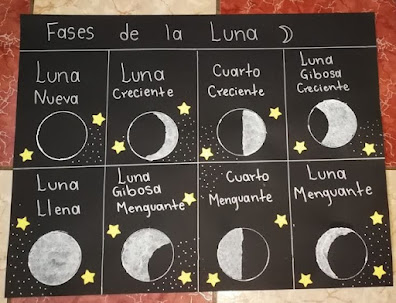 Fases de la Luna
Luna
Nueva
Luna
Creciente
Cuarto
Creciente
Luna
Gibosa
Creciente
Luna
Llena
Luna
Gibosa
Menguante
Cuarto
Menguante
Luna
Menguante